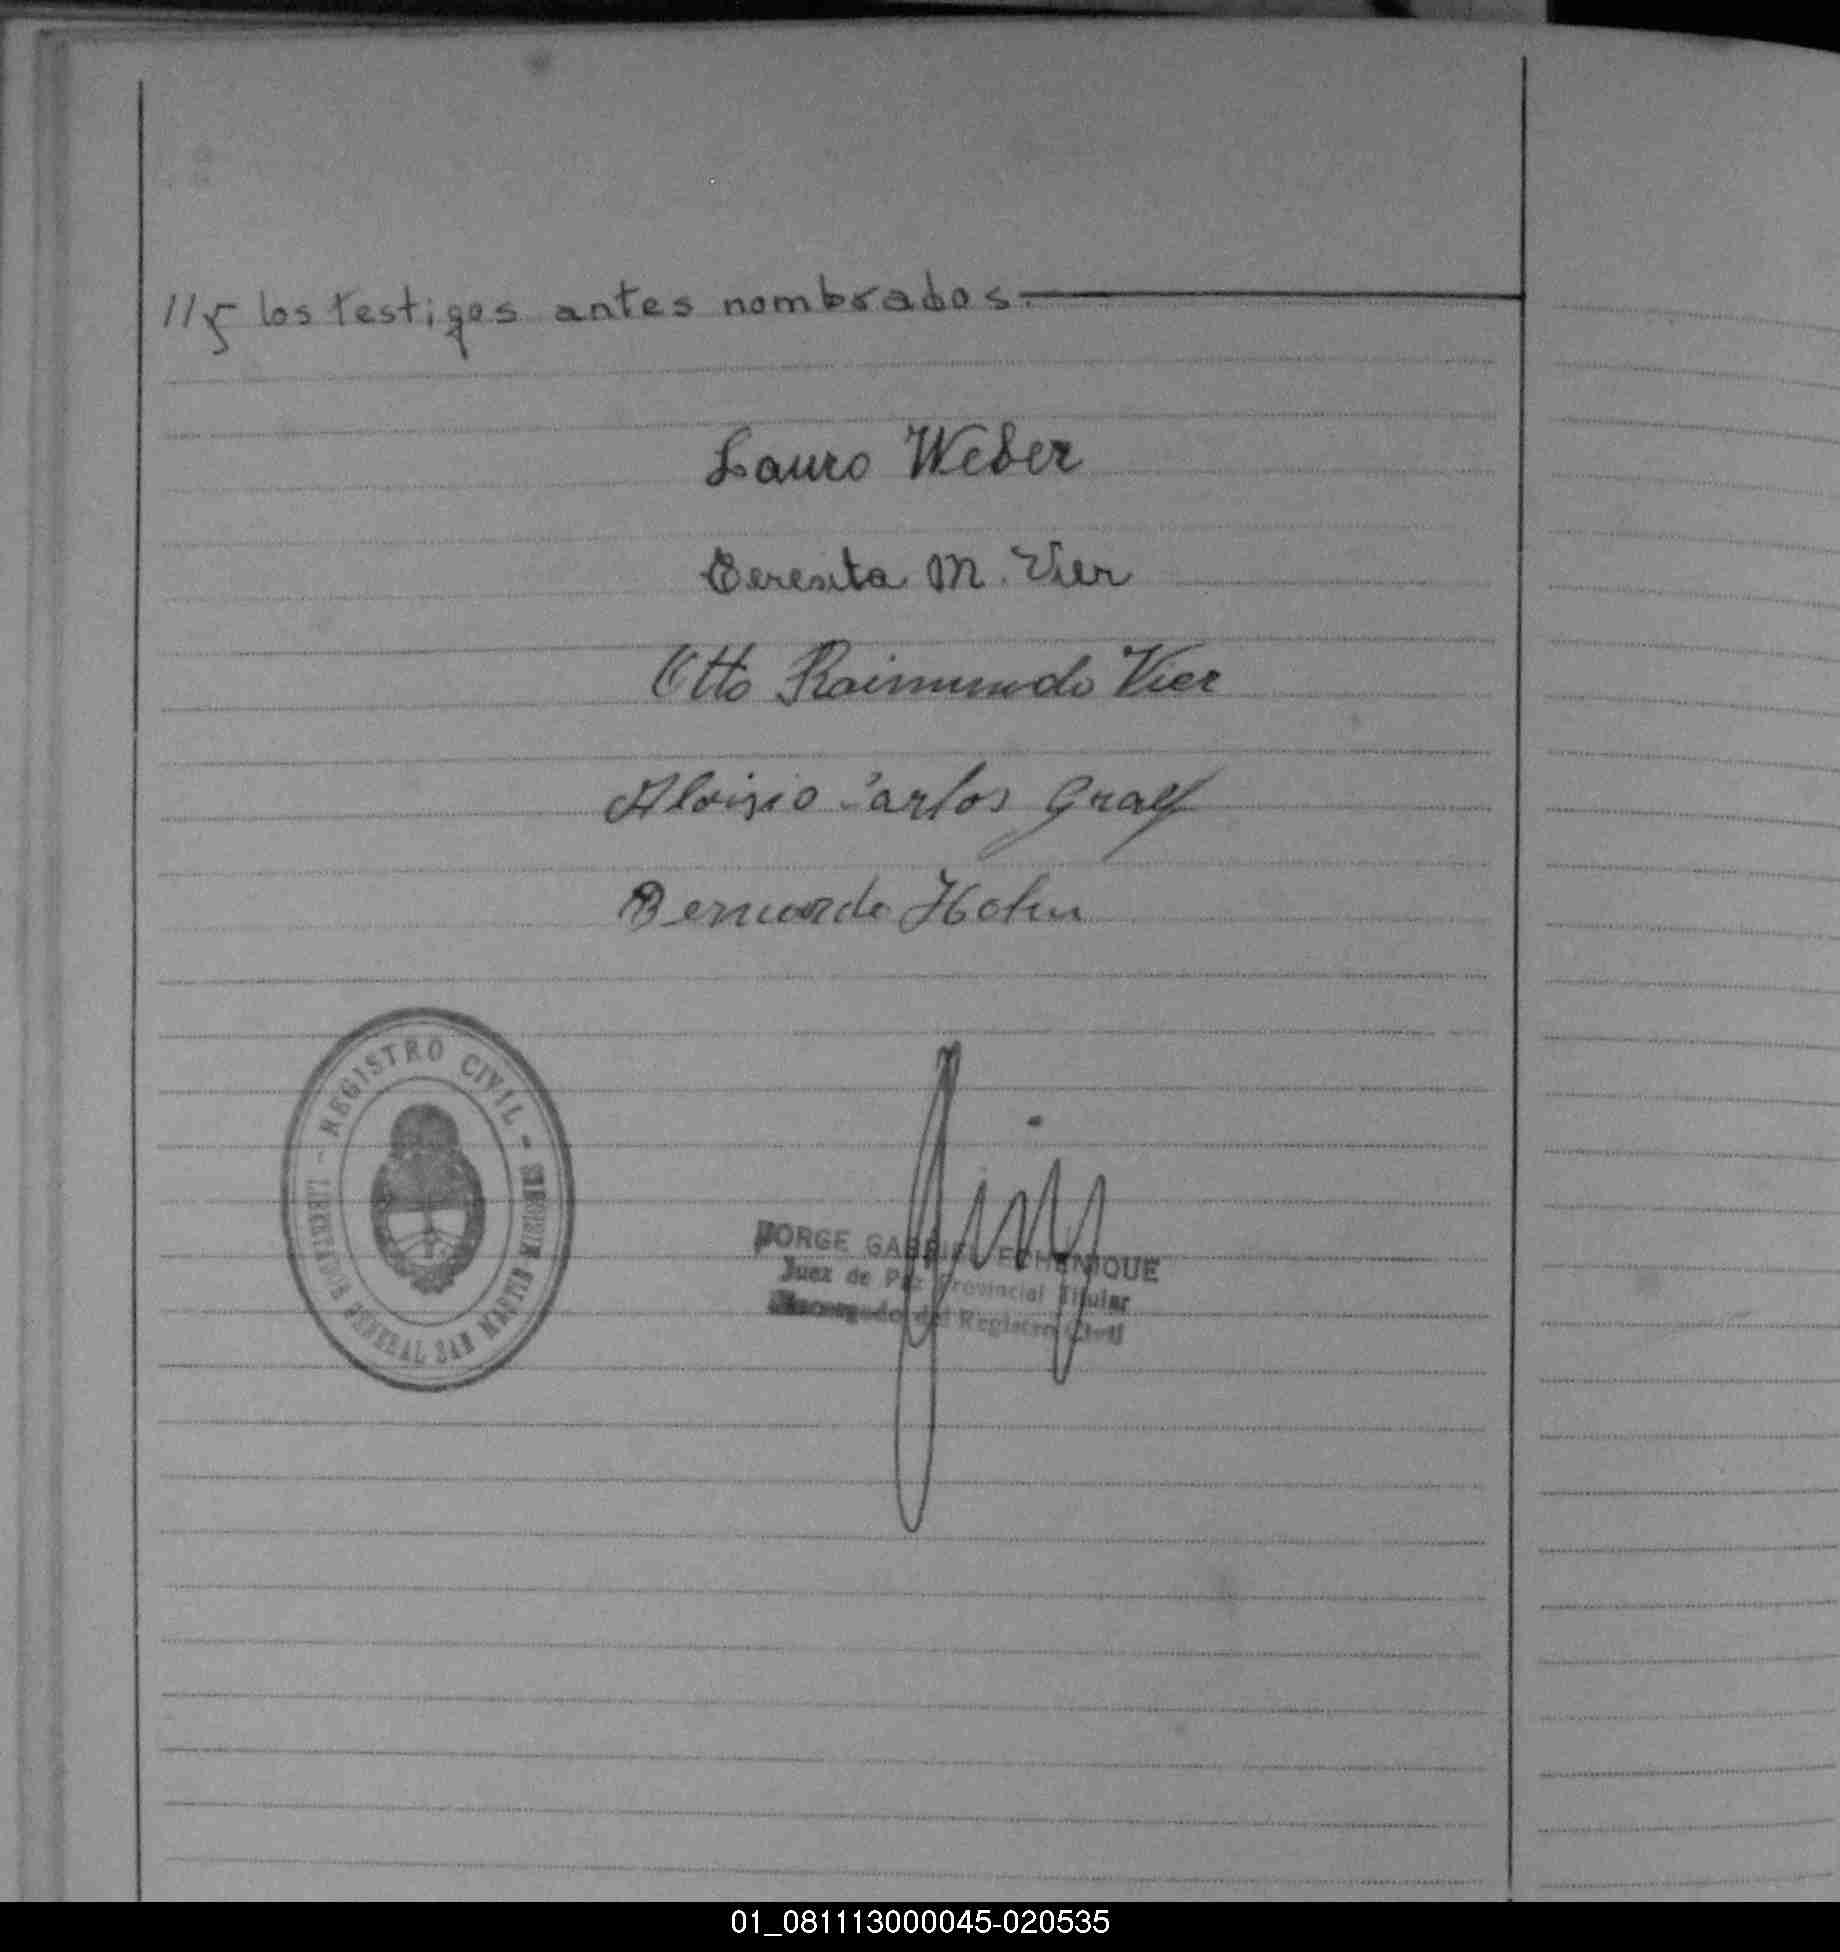 //y los testigos antes nombrados.
Lauro Weber
Teresita M. Vier
Otto Raimundo Vier
Aloisio Carlos Graef
Bernardo Hohn
REGISTRO CIVIL - LIBERTADOR GENERAL SAN MARTIN
JORGE GABRIEL ECHENIQUE
Juez de Paz Provincial Titular
Encargado del Registro Civil
01_081113000045-020535